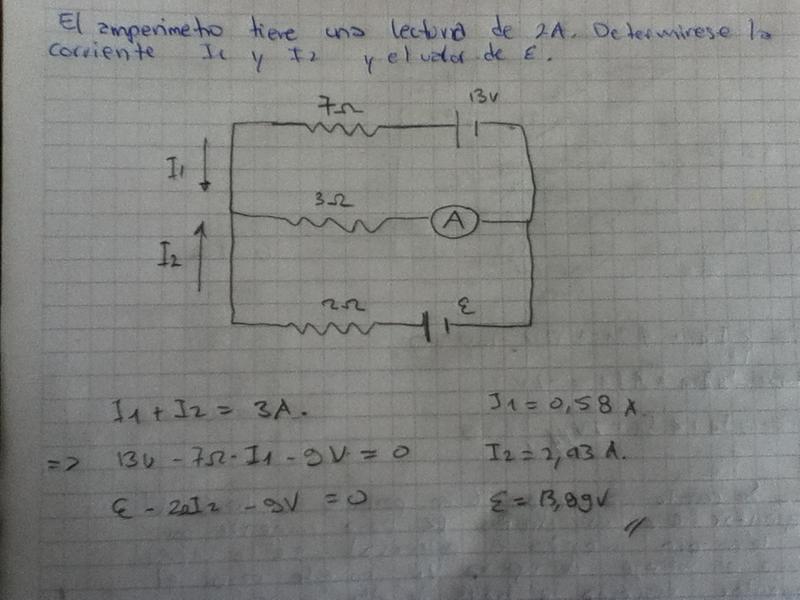 El amperimetro tiene una lectura de 2A. Determinese la
corriente I1 y I2 y el valor de ε.
7Ω
13V
I1
3Ω
A
I2
2Ω
ε
I1 + I2 = 3A.
I1 = 0,58 A.
=> 13V - 7Ω·I1 - 9V = 0
ε - 2ΩI2 - 9V = 0
ε = 13,99V